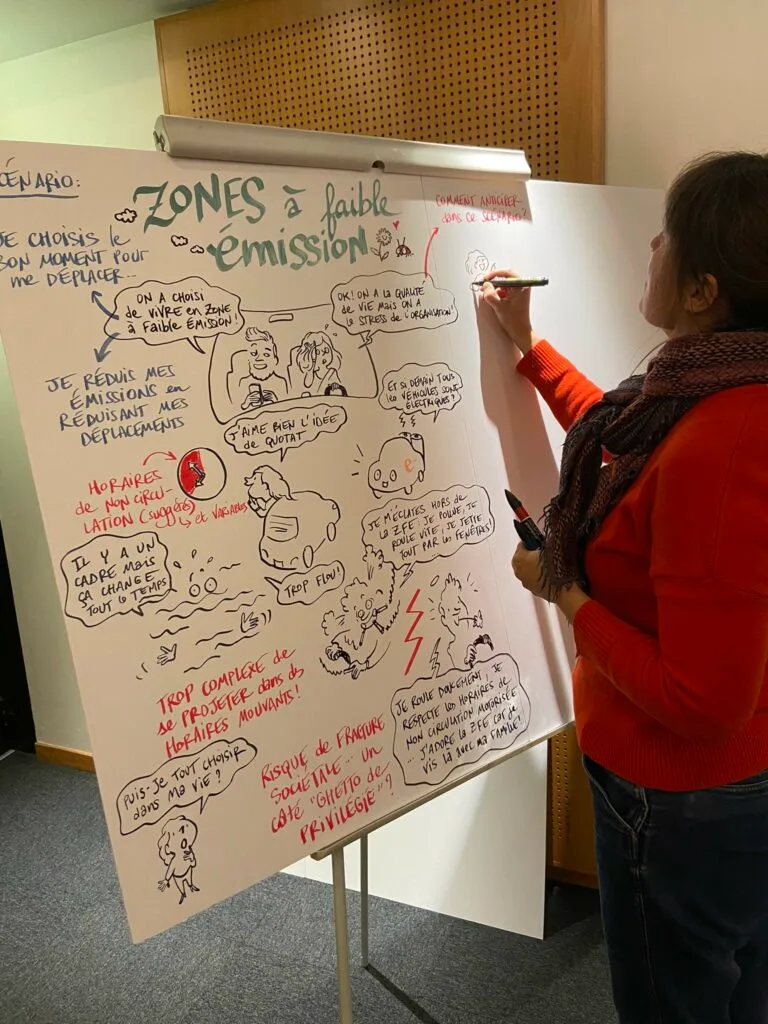 SCÉNARIO:
ZONES à faible
émission
COMMENT ANTICIPER
dans ce SCÉNARIO?
JE CHOISIS le
BON MOMENT POUR
me DÉPLACER...
ON A CHOISI
de ViVRE en ZONE
à FAIBLE ÉMISSION!
OK! ON A LA QUALITÉ
de VIE MAIS ON A
le STRESS de L'ORGANISATION!
JE RÉDUIS MES
ÉMISSIONS en
RÉDUISANT MES
DÉPLACEMENTS
J'AIME BIEN L'IDÉE
de QUOTAT
ET SI DEMAIN TOUS
les VÉHICULES SONT
ÉLECTRIQUES?
e-
HORAIRES
de NON CIRCU-
LATION (suggérés)
et VARIABLES
JE M'ÉCLATES HORS de
la ZFE: JE POLLUE, JE
ROULE VITE, JE JETTE
TOUT PAR les FENÊTRES!
IL Y A UN
CADRE MAIS
ÇA CHANGE
TOUT le TEMPS
TROP FLOU!
TROP COMPLEXE de
se PROJETER dans des
HORAIRES MOUVANTS!
JE ROULE DOUCEMENT, JE
RESPECTE les HORAIRES de
NON CIRCULATION MOTORISÉE
... J'ADORE la ZFE car je
VIS LÀ avec MA FAMILLE!
RISQUE de FRACTURE
SOCIÉTALE... UN
CÔTÉ "GHETTO de
PRIVILÉGIÉ"?
PUIS-JE TOUT CHOISIR
dans MA VIE?